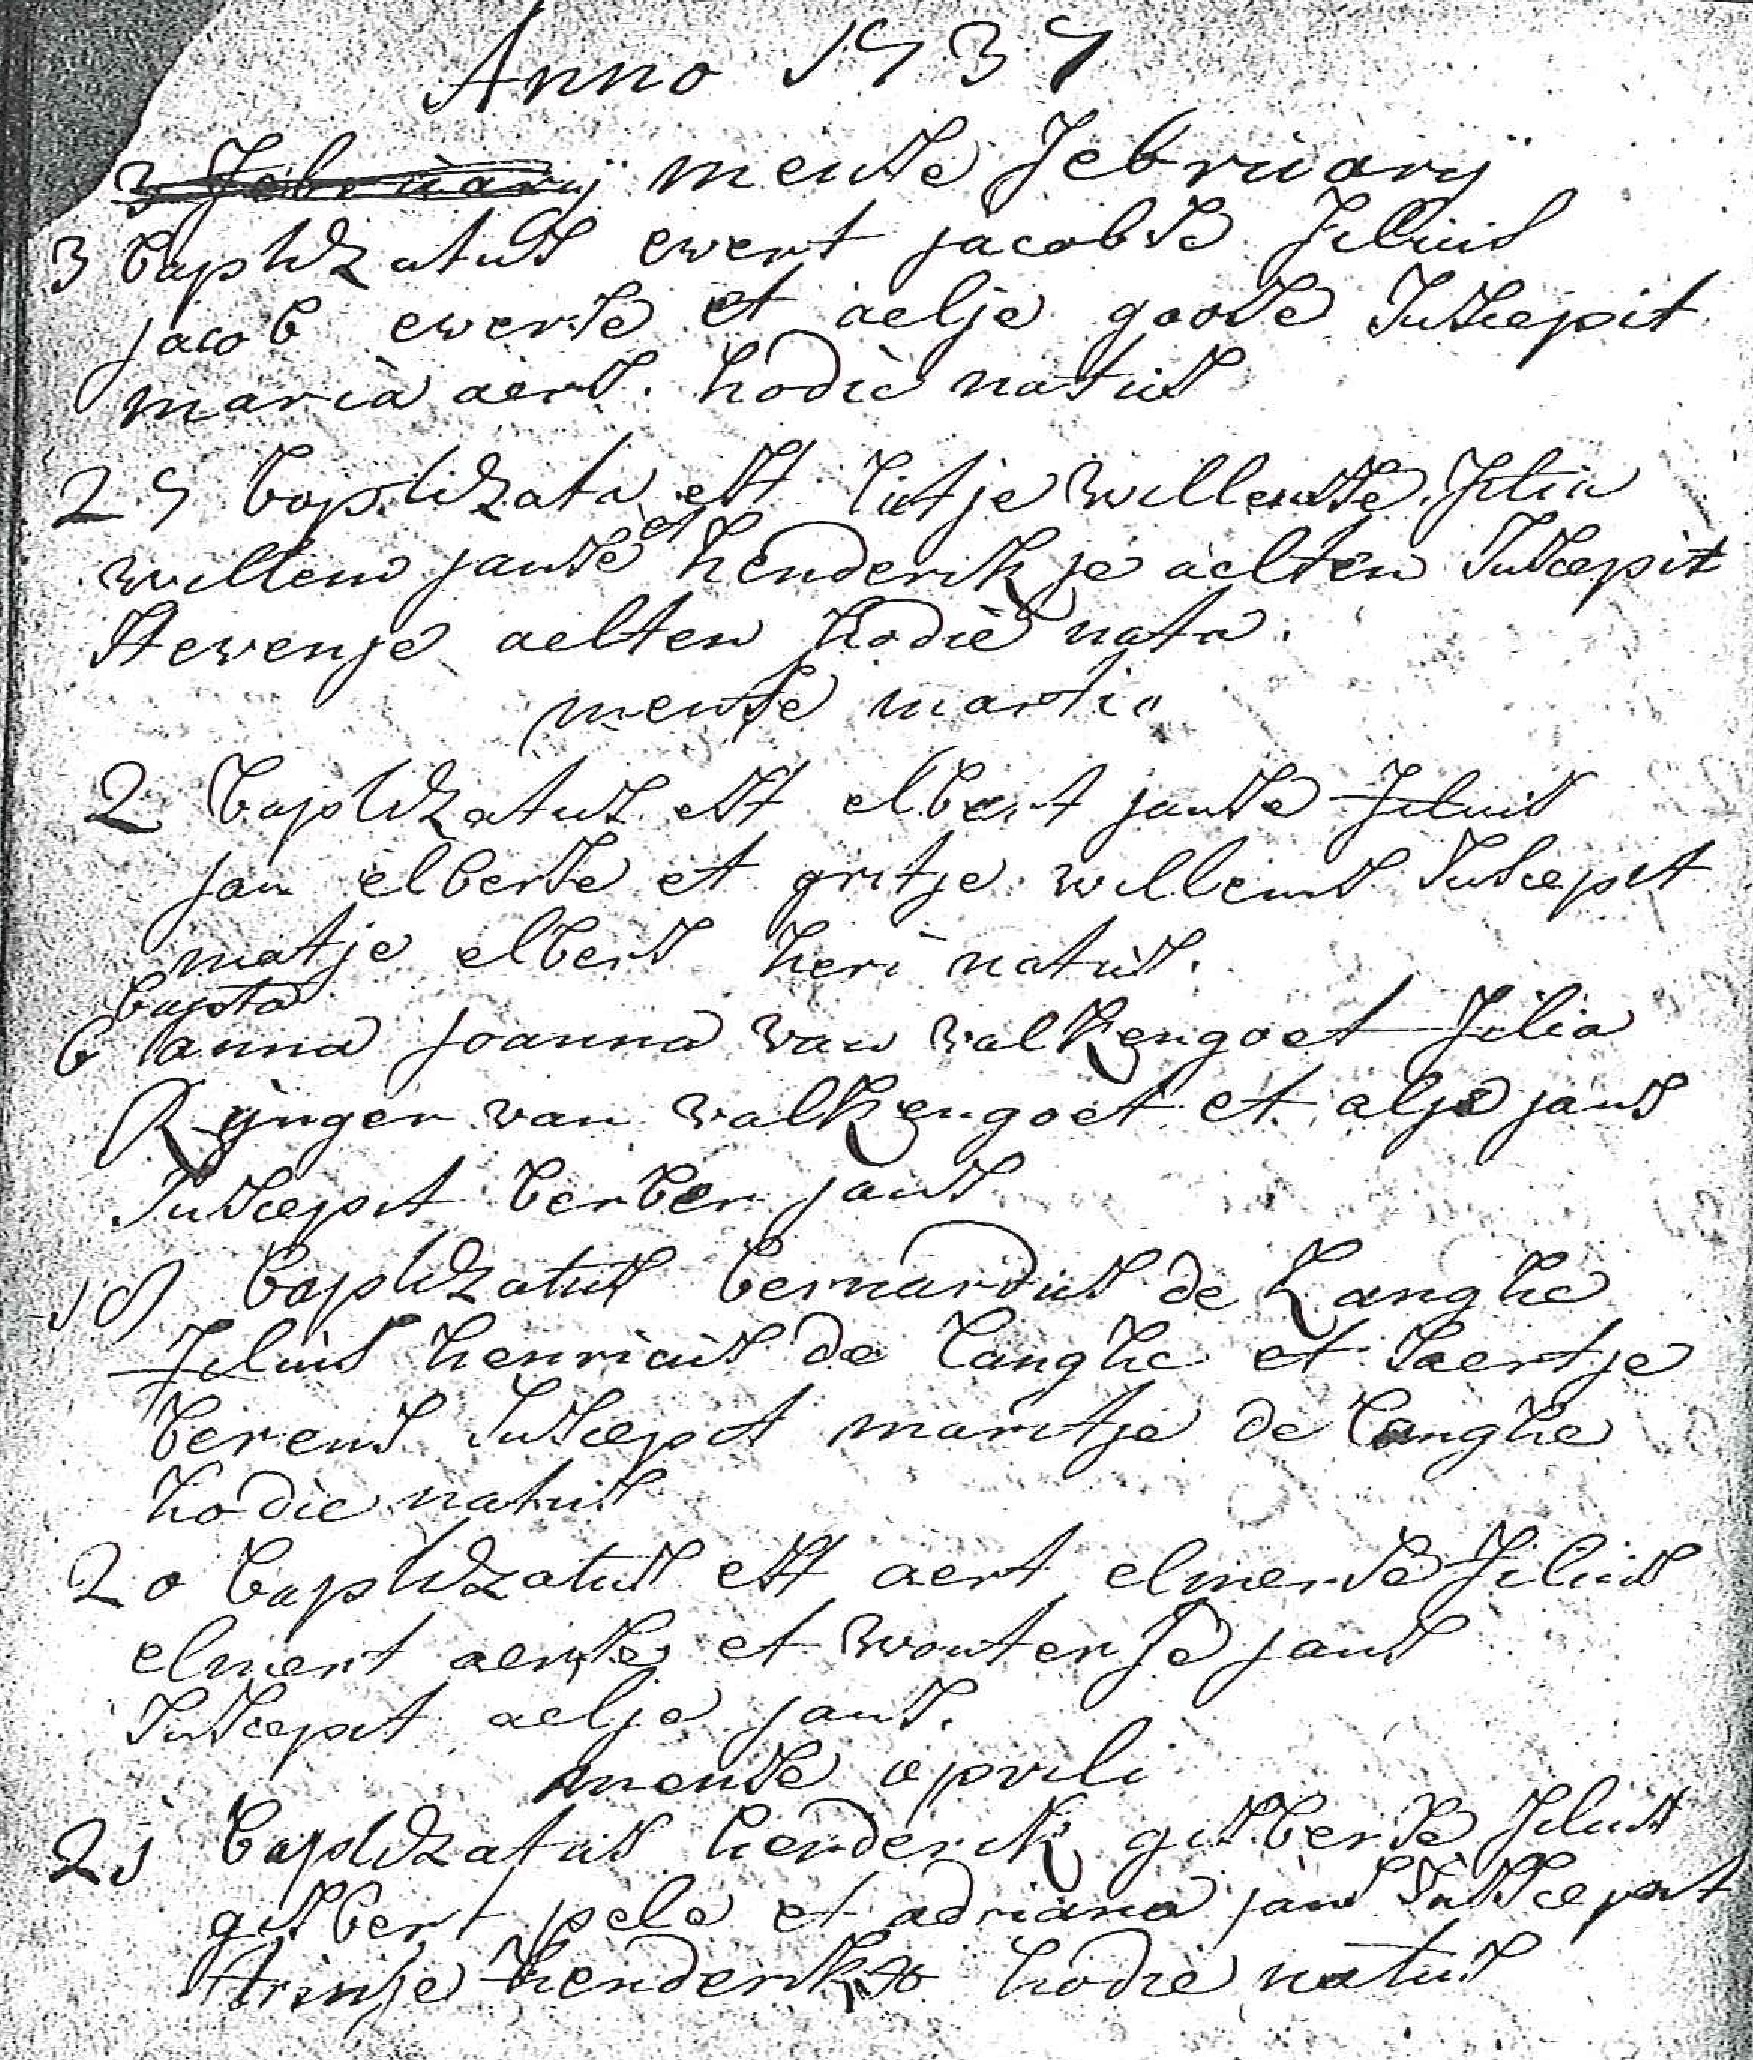 Anno 1737
3 February mense February
3 baptizatus evert jacobse filius
jacob everse et aelje goose suscepit
maria aers. hodie natus
27 baptizata est lutje willemse filia
willem janse et henderikje aelten suscepit
stevenje aelten hodie nata.
mense martii
2 baptizatus est elbert janse filius
jan elberse et gritje willems suscepit
matje elbers heri natus.
bapta
6 anna joanna van valkengoet filia
Rynger van valkengoet et alje jans
suscepit berber jans
18 baptizatus bernardus de Langhe
filius henricus de langhe et baertje
berens suscepit maritje de langhe
hodie natus
20 baptizatus est aert elmerse filius
elmert aertse et wouterje jans
suscepit aelje jans.
mense aprili
21 baptizatus henderik gisberse filius
gisbert pele et adriana jans suscepit
strinje henderikse hodie natus